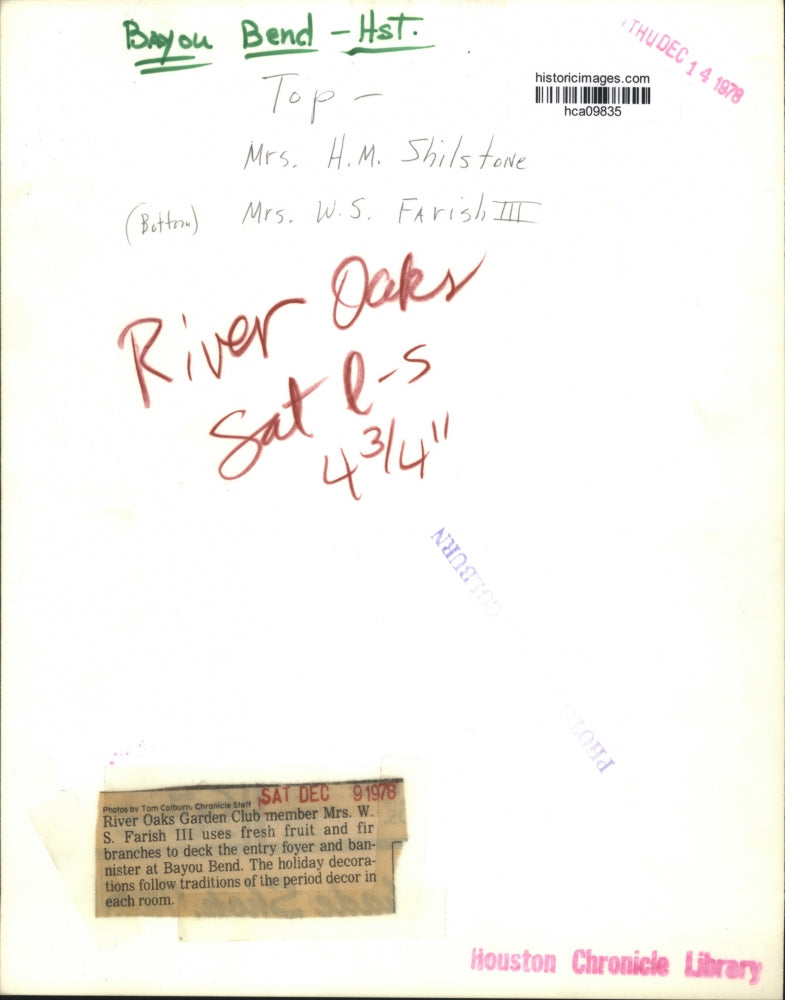 Bayou Bend - Hst.
THU DEC 14 1978
historicimages.com
hca09835
Top -
Mrs. H.M. Shilstone
(Bottom) Mrs. W.S. Farish III
River Oaks
Sat l-s
4 3/4"
COLBURN
PHOTO
Photos by Tom Colburn, Chronicle Staff
SAT DEC 9 1978
River Oaks Garden Club member Mrs. W.
S. Farish III uses fresh fruit and fir
branches to deck the entry foyer and ban-
nister at Bayou Bend. The holiday decora-
tions follow traditions of the period decor in
each room.
Houston Chronicle Library